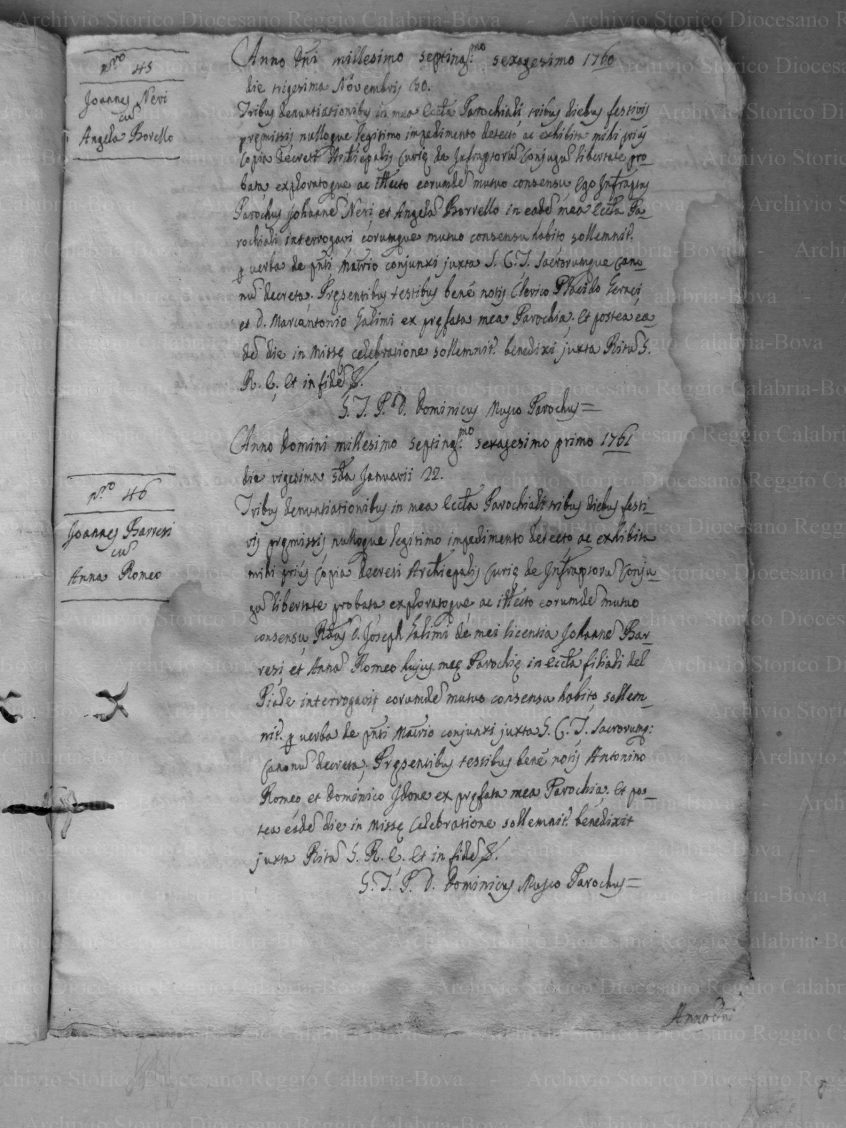 N.ro 45
Joannes Neri
cũ
Angela Borrello
Anno Dñi millesimo septing.mo sexagesimo 1760
die trigesima Novembris 30.
Tribus denuntiationibus in mea Eccla Parochiali tribus diebus festivis
premissis nulloque legitimo impedimento detecto ac exhibita mihi prius
Copia Decreti Archiepalis Curie de Infraptorũ Conjugũ libertate pro-
bata exploratoque ac eorumdẽ mutuo consensu Ego Infraptus
Parochus Johannẽ Neri et Angelã Borrello in eadẽ mea Eccla Pa-
rochiali interrogavi eorumque mutuo consensu habito sollemnit.
p verba de pñti Matrio conjunxi juxta S. C. T. Sacrorumque Cano-
nũ decreta. Presentibus testibus bene notis Clerico Placido Geraci
et D. Marcantonio Galimi ex prefata mea Parochia. Et postea ea-
dẽ die in Misse celebratione sollemnit. benedixi juxta Ritũ S.
R. E. Et in fidẽ &.
S. T. P. D. Dominicus Musco Parochus=
N.ro 46
Joannes Barreri
cũ
Anna Romeo
Anno Domini millesimo septing.mo sexagesimo primo 1761
die vigesima 2da Januarii 22.
Tribus denuntiationibus in mea Eccla Parochiali tribus diebus festi-
vis premissis nulloque legitimo impedimento detecto ac exhibita
mihi prius Copia decreti Archiepalis Curie de Infraptorũ Conju-
gũ libertate probata exploratoque ac eorumdẽ mutuo
consensu, D. Joseph Galimi de mei licentia Johannẽ Bar-
reri et Annã Romeo hujus mee Parochie in Eccla filiali del
Piale interrogavit eorumdẽ mutuo consensu habito sollem-
nit. p verba de pñti Matrio conjunxi juxta S. C. T. Sacrorumq:
Canonũ decreta, Presentibus testibus bene notis Antonino
Romeo et Dominico Idone ex prefata mea Parochia. Et pos-
tea eadẽ die in Misse Celebratione sollemnit. benedixit
juxta Ritũ S. R. E. Et in fidẽ &.
S. T. P. D. Dominicus Musco Parochus=
Anno Dñi
Archivio Storico Diocesano Reggio Calabria-Bova